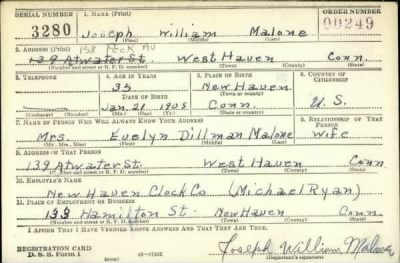 SERIAL NUMBER 1. NAME (Print) ORDER NUMBER
3280 Joseph William Malone 00249
(First) (Middle) (Last)
2. ADDRESS (Print) 158 Peck Av
139 Atwater St. West Haven Conn.
(Number and street or R. F. D. number) (Town) (County) (State)
3. TELEPHONE 4. AGE IN YEARS 5. PLACE OF BIRTH 6. COUNTRY OF CITIZENSHIP
35 New Haven
DATE OF BIRTH (Town or county)
Jan. 21 1905 Conn. U. S.
(Exchange) (Number) (Mo.) (Day) (Yr.) (State or country)
7. NAME OF PERSON WHO WILL ALWAYS KNOW YOUR ADDRESS 8. RELATIONSHIP OF THAT PERSON
Mrs. Evelyn Dillman Malone Wife
(Mr., Mrs., Miss) (First) (Middle) (Last)
9. ADDRESS OF THAT PERSON
139 Atwater St. West Haven Conn.
(Number and street or R. F. D. number) (Town) (County) (State)
10. EMPLOYER'S NAME
New Haven Clock Co (Michael Ryan)
11. PLACE OF EMPLOYMENT OR BUSINESS
133 Hamilton St. New Haven Conn.
(Number and street or R. F. D. number) (Town) (County) (State)
I AFFIRM THAT I HAVE VERIFIED ABOVE ANSWERS AND THAT THEY ARE TRUE.
REGISTRATION CARD
D. S. S. Form 1 Joseph William Malone
(Registrant's signature)